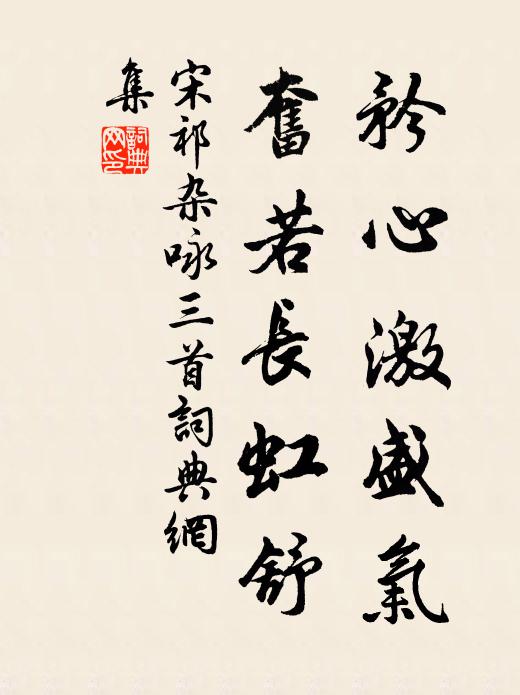 矜心激盛氣
奮若長虹舒
宋祁杂咏三首詞典網
集
詞典網印